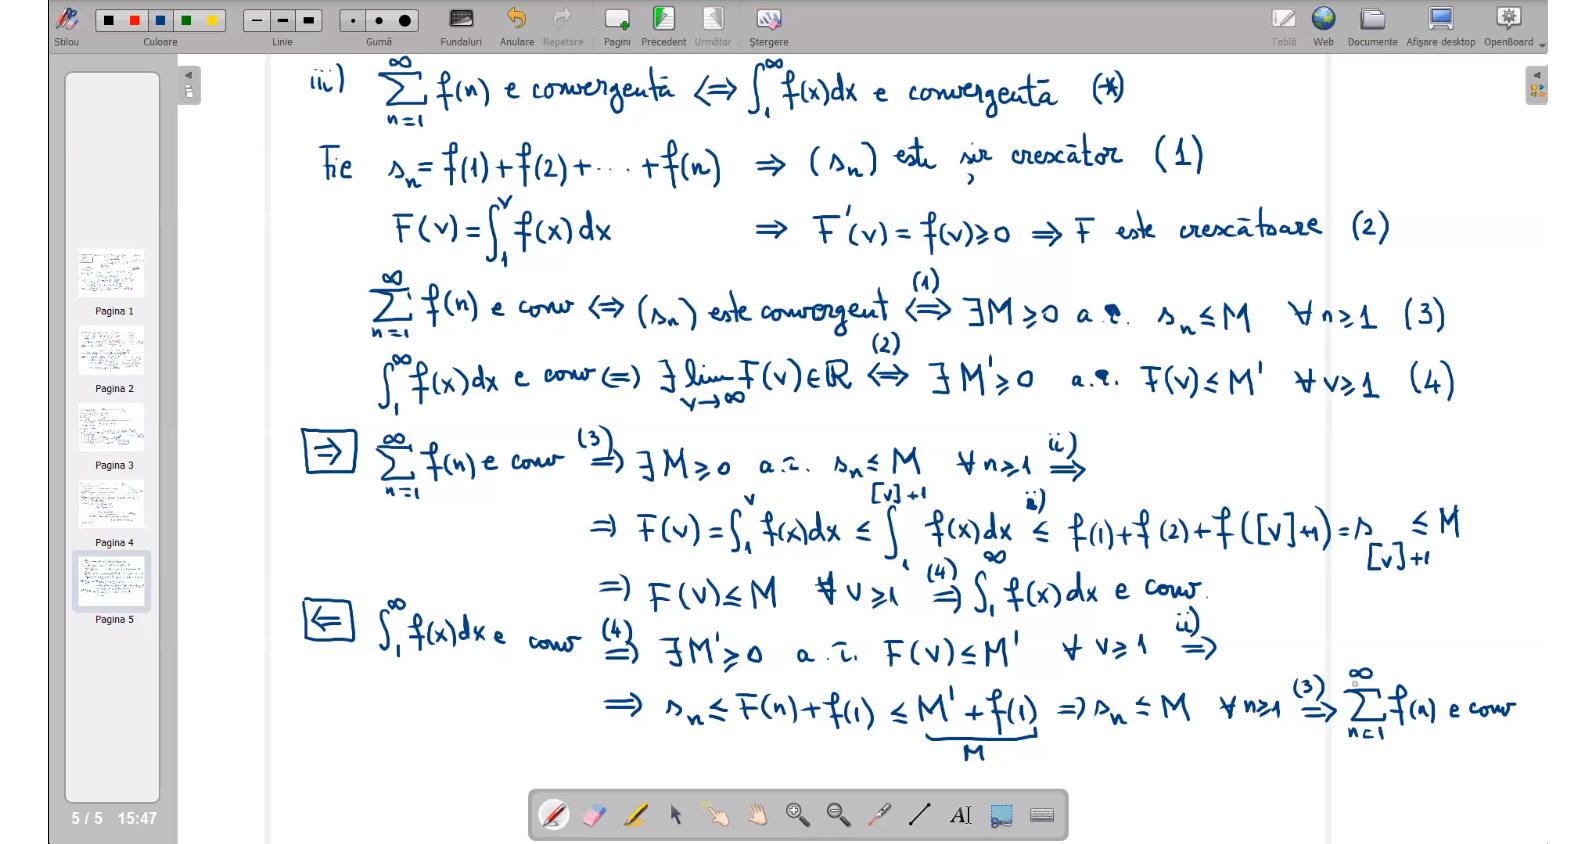 Stilou Culoare Linie Gumă Fundaluri Anulare Repetare Pagini Precedent Următor Ștergere Tablă Web Documente Afișare desktop OpenBoard
iii) ∑_{n=1}^{∞} f(n) e convergentă ⟺ ∫_1^∞ f(x)dx e convergentă (*)
Fie s_n = f(1)+f(2)+...+f(n) ⇒ (s_n) este șir crescător (1)
F(v) = ∫_1^v f(x)dx ⇒ F'(v) = f(v) ≥ 0 ⇒ F este crescătoare (2)
∑_{n=1}^{∞} f(n) e conv ⟺ (s_n) este convergent ⟺^{(1)} ∃ M ≥ 0 a.î. s_n ≤ M ∀ n ≥ 1 (3)
∫_1^∞ f(x)dx e conv ⟺ ∃ lim_{v→∞} F(v) ∈ ℝ ⟺^{(2)} ∃ M' ≥ 0 a.î. F(v) ≤ M' ∀ v ≥ 1 (4)
⇒ ∑_{n=1}^{∞} f(n) e conv ⇒^{(3)} ∃ M ≥ 0 a.î. s_n ≤ M ∀ n ≥ 1 ⇒^{ii)}
⇒ F(v) = ∫_1^v f(x)dx ≤ ∫_1^{[v]+1} f(x)dx ≤^{ii)} f(1)+f(2)+f([v]+1) = s_{[v]+1} ≤ M
⇒ F(v) ≤ M ∀ v ≥ 1 ⇒^{(4)} ∫_1^∞ f(x)dx e conv.
⇐ ∫_1^∞ f(x)dx e conv ⇒^{(4)} ∃ M' ≥ 0 a.î. F(v) ≤ M' ∀ v ≥ 1 ⇒^{ii)}
⇒ s_n ≤ F(n)+f(1) ≤ M'+f(1) ⇒ s_n ≤ M ∀ n ≥ 1 ⇒^{(3)} ∑_{n=1}^{∞} f(n) e conv
M
Pagina 1
Pagina 2
Pagina 3
Pagina 4
Pagina 5
5 / 5 15:47